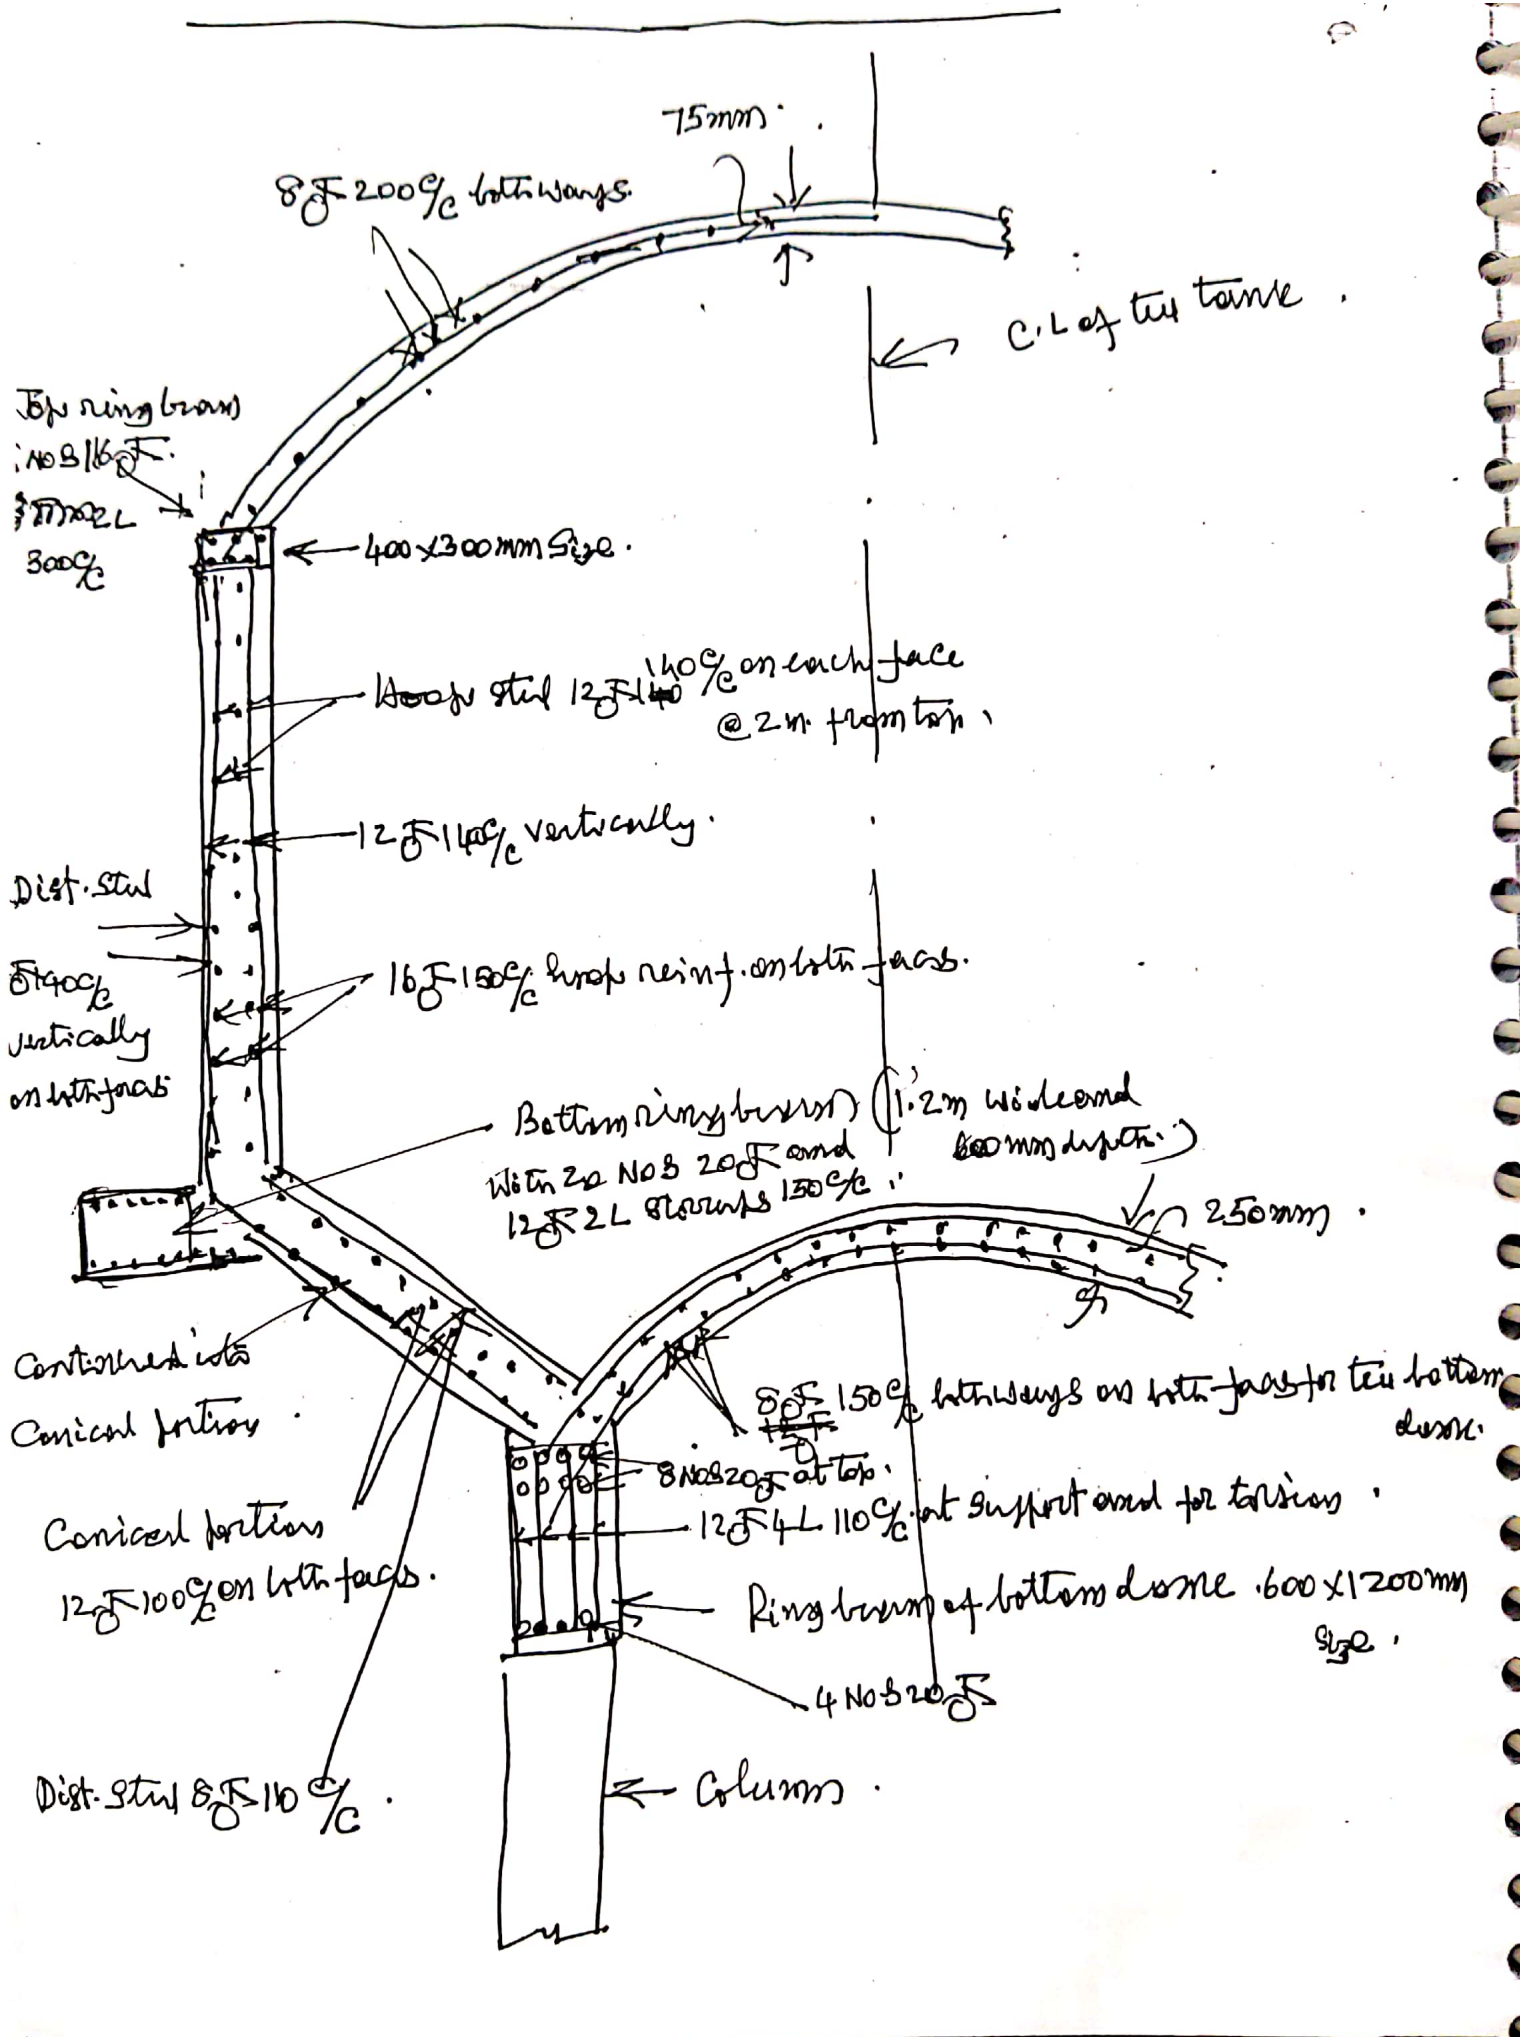 75mm
8Ŧ 200 c/c both ways.
C.L of the tank.
Top ring beam
NOS 16Ŧ.
2L
300 c/c
400x300mm Size.
Hoop steel 12Ŧ 140 c/c on each face
@ 2m. from top.
12Ŧ 140 c/c vertically.
Dist. Steel
140 c/c
vertically
on both faces
16Ŧ 150 c/c hoop reinf. on both faces.
Bottom ring beam (1.2m wide and
600 mm depth.)
With 20 NOS 20Ŧ and
12Ŧ 2L Stirrups 150 c/c.
250mm.
Continued into
Conical portion.
8Ŧ 150 c/c both ways on both faces for the bottom
dome.
8 NOS 20Ŧ at top.
12Ŧ 4L 110 c/c at Support and for torsion.
Conical portion
12Ŧ 100 c/c on both faces.
Ring beam of bottom dome 600x1200mm
Size.
4 NOS 20Ŧ
Dist. Steel 8Ŧ 110 c/c.
Column.